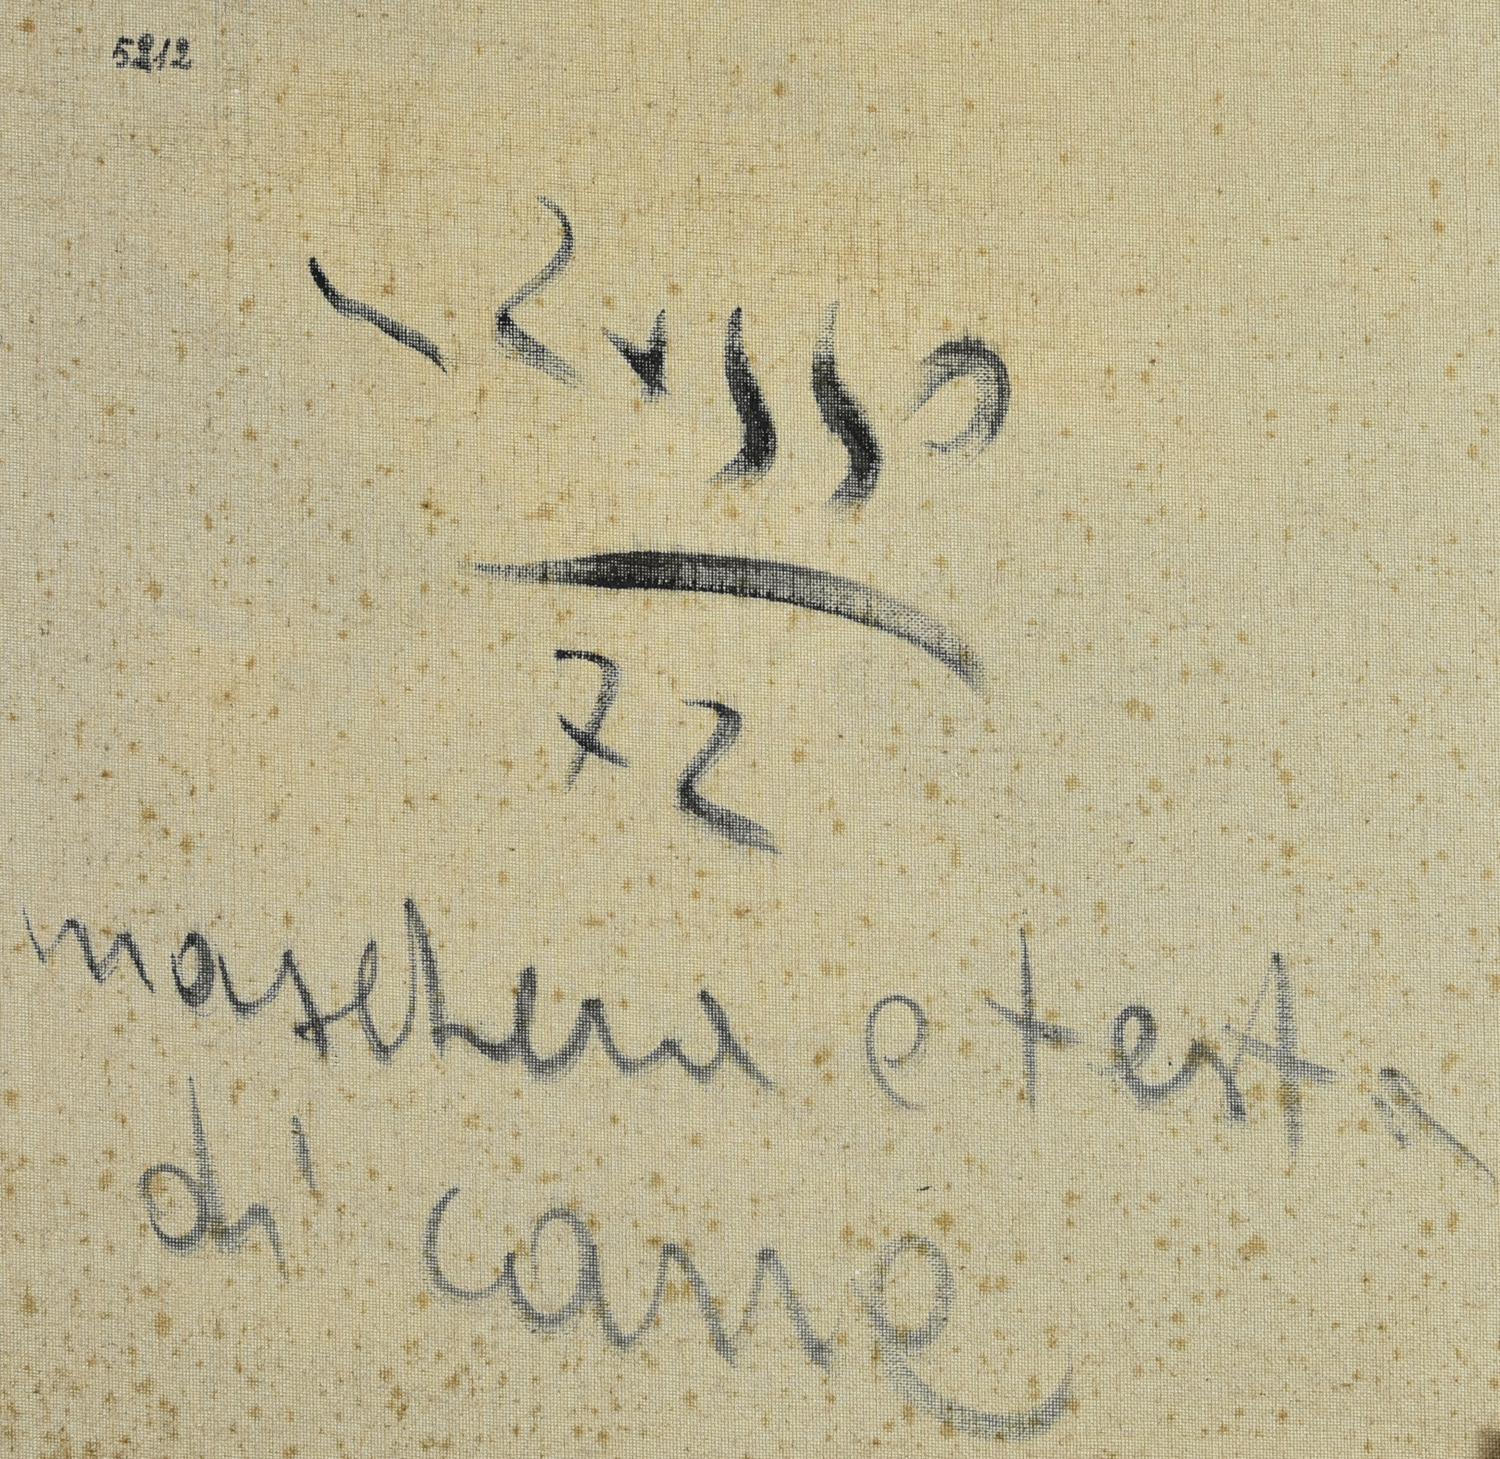 5212
Russo
72
maschera e testa
di cane